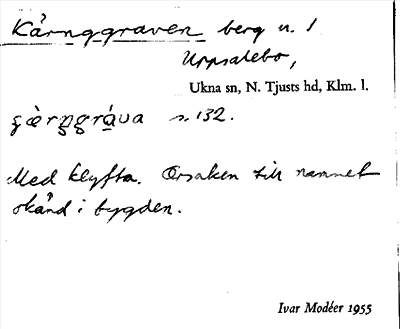 Kärnggraven berg n. l
Uppsalebo,
Ukna sn, N. Tjusts hd, Klm. l.
s. 132.
Med klyfta. Orsaken till namnet
okänd i bygden.
Ivar Modéer 1955